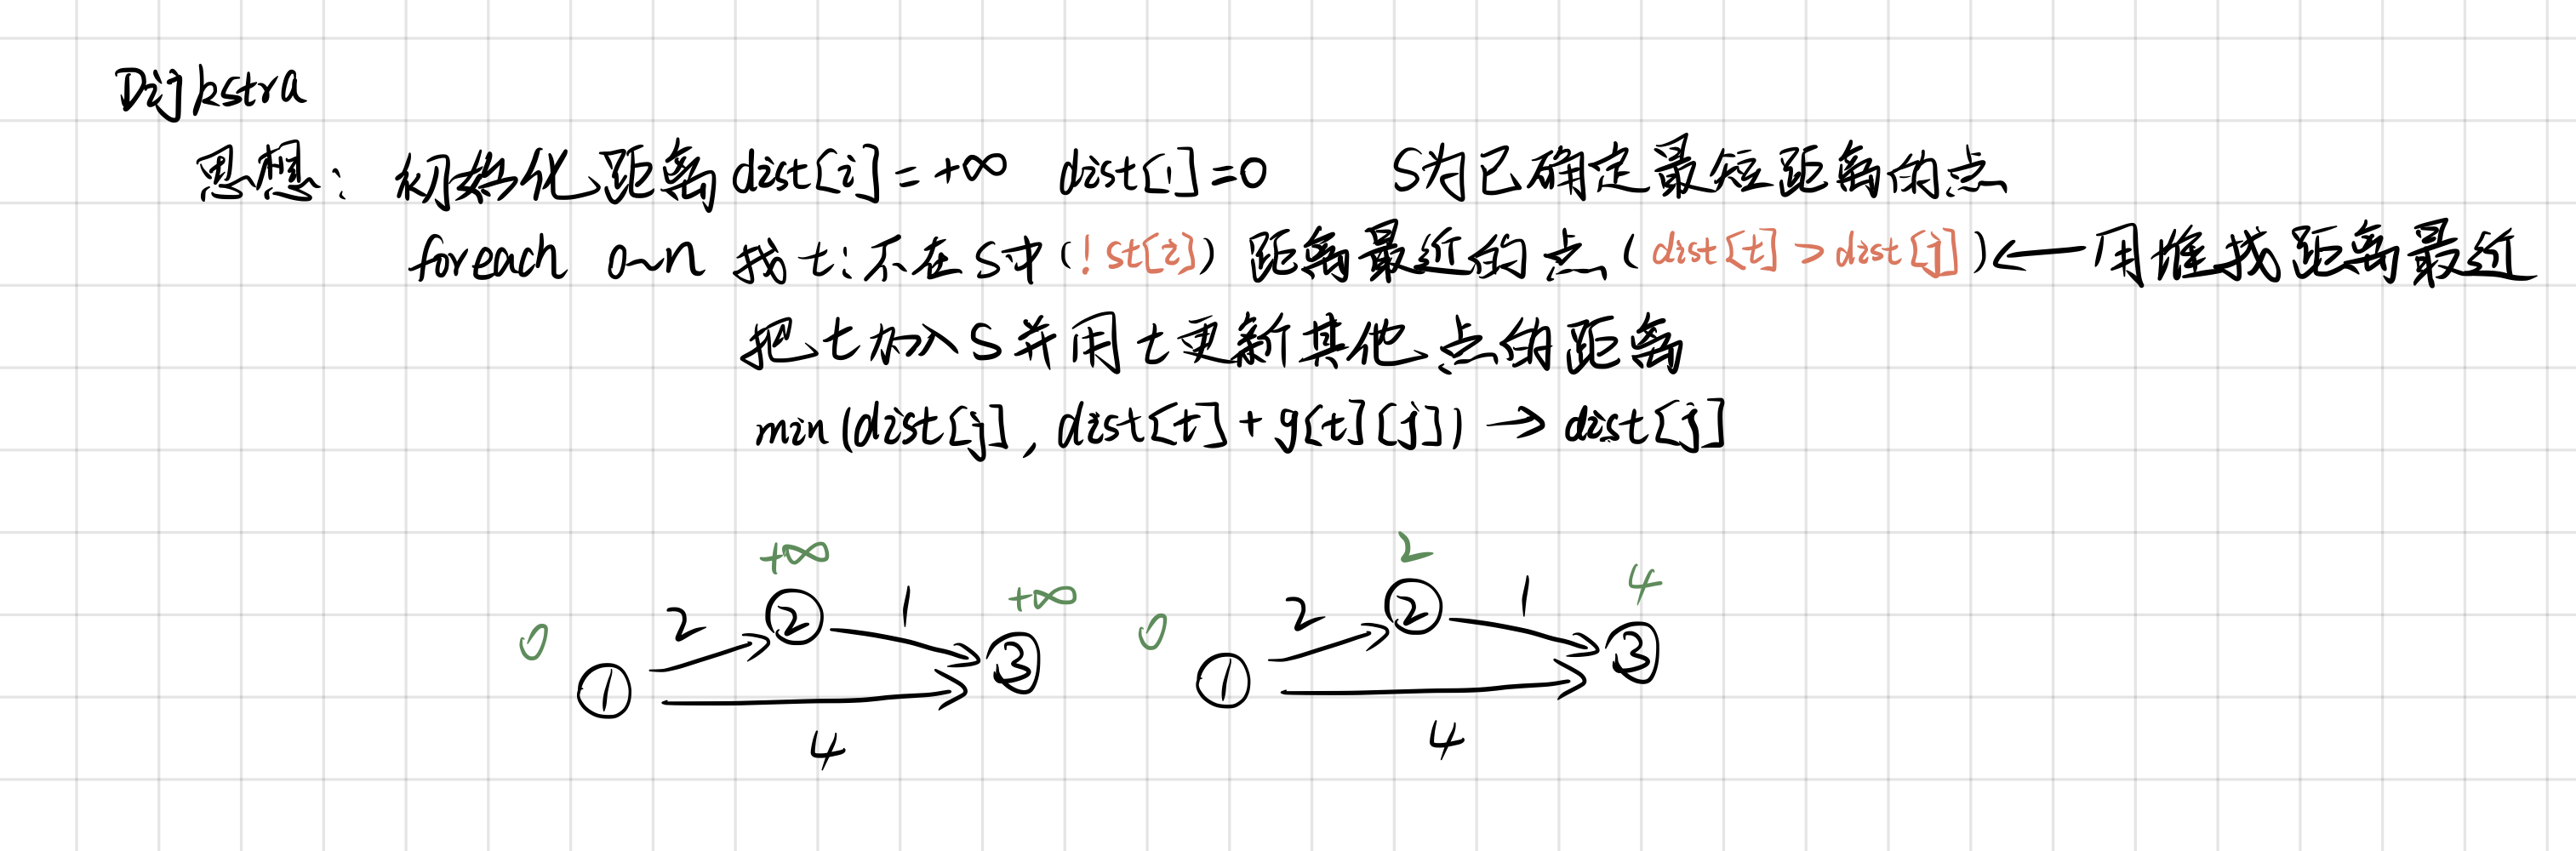 Dijkstra
思想: 初始化距离 dist[i]=+∞ dist[1]=0 S为已确定最短距离的点
foreach 0~n 找t: 不在S中(!st[i]) 距离最近的点(dist[t] > dist[j])← 用堆找距离最近
把t加入S并用t更新其他点的距离
min(dist[j], dist[t]+g[t][j]) → dist[j]
+∞ 2
0 2 ② 1 +∞ 0 2 ② 1 4
① ③ ① ③
4 4